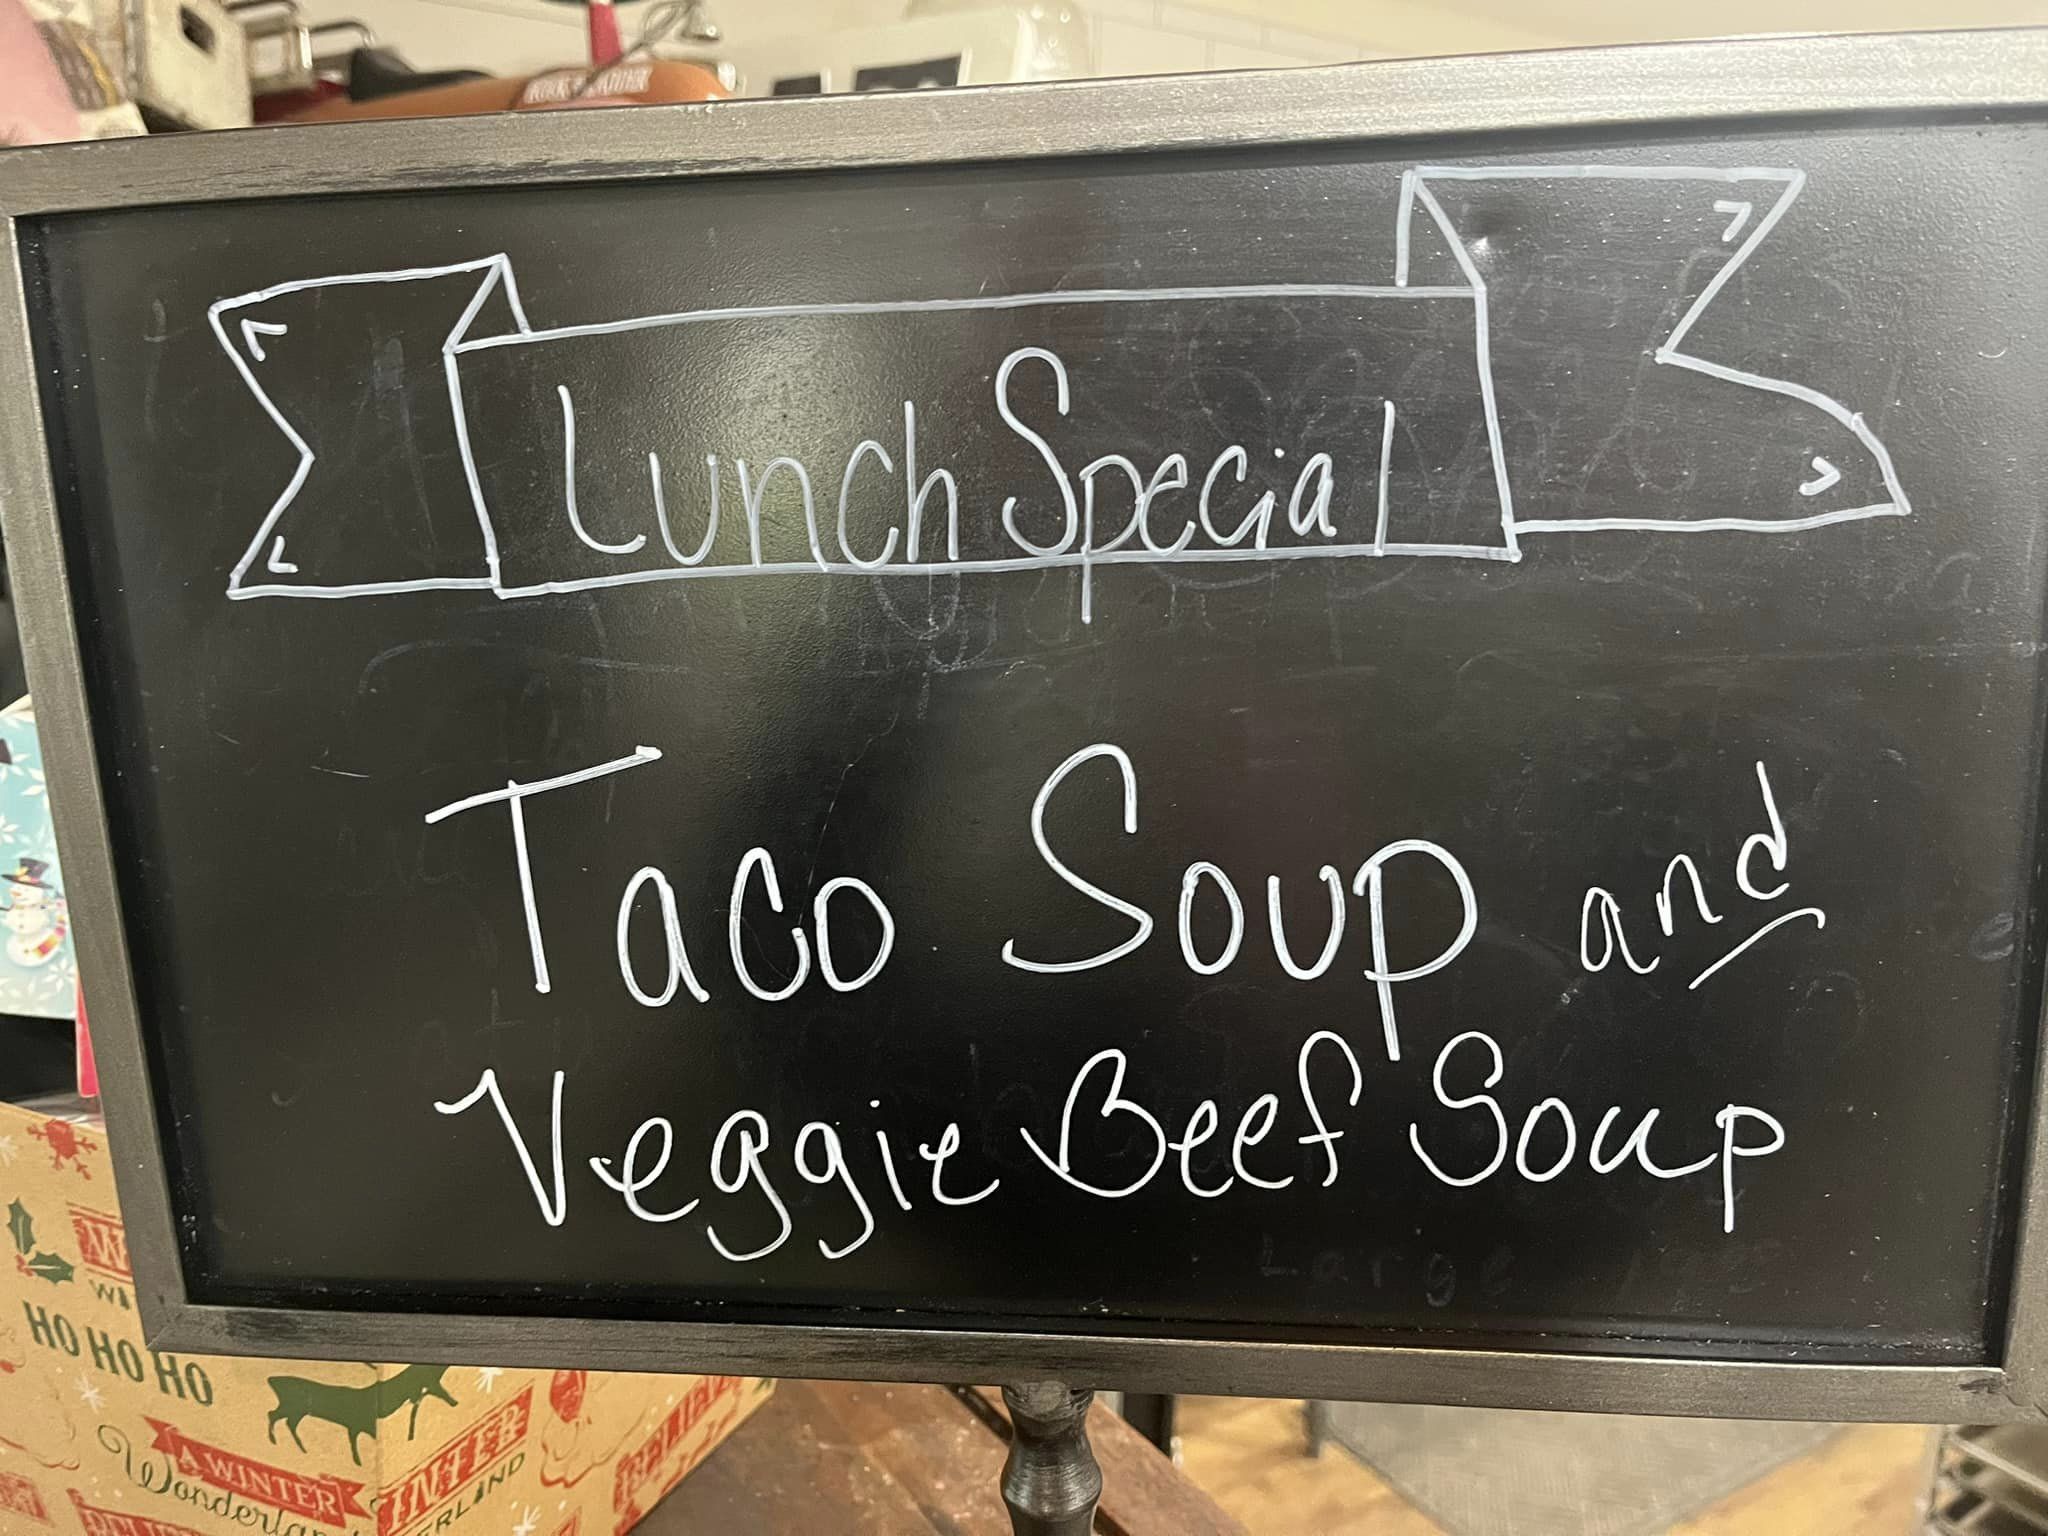 Lunch Special
Taco Soup and
Veggie Beef Soup
Large
HO HO HO
A WINTER
Wonderlan
WINTER
ERLAND